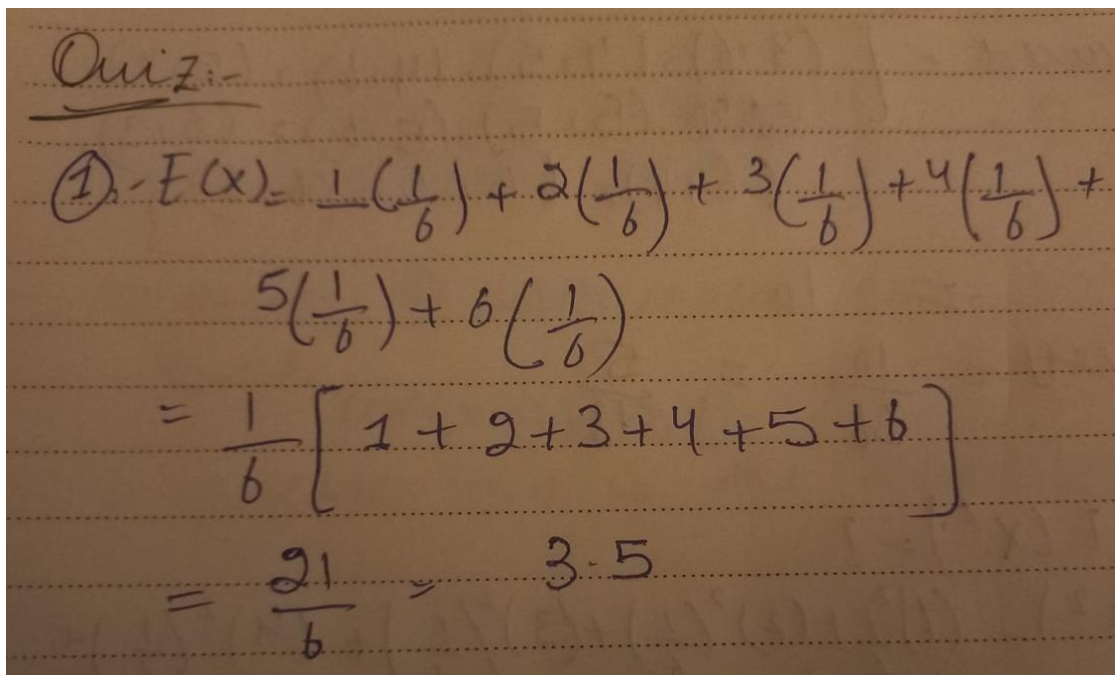 Quiz:-
①:- E(X) = 1(1/6) + 2(1/6) + 3(1/6) + 4(1/6) +
5(1/6) + 6(1/6)
= 1/6 [1 + 2 + 3 + 4 + 5 + 6]
= 21/6 = 3.5